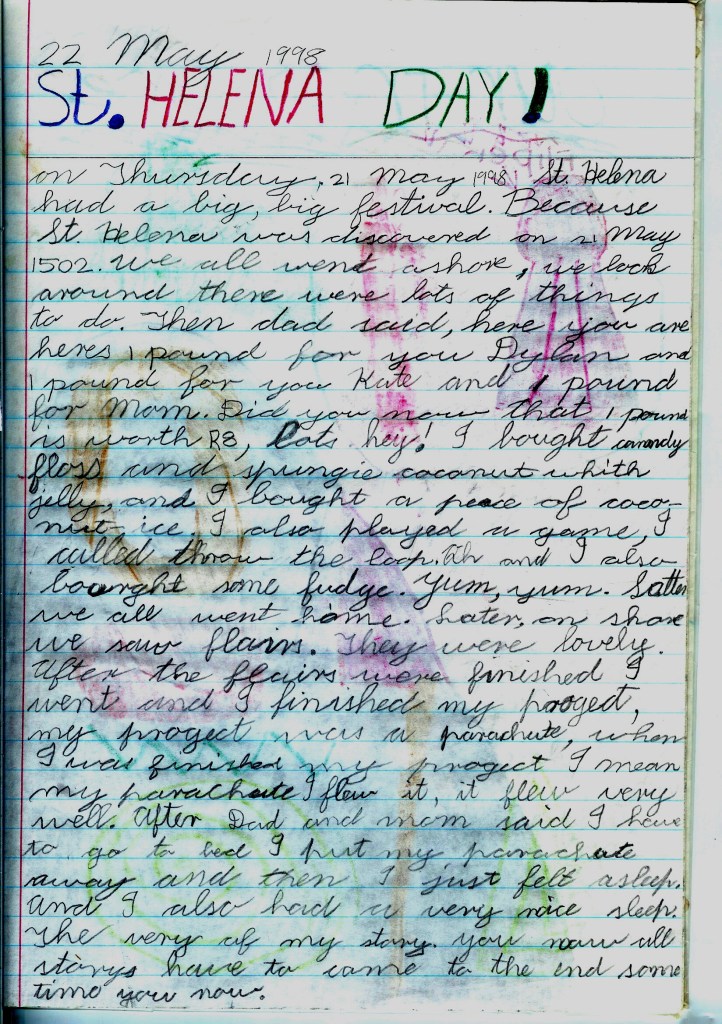 22 May 1998
St. HELENA DAY!
on Thursday, 21 May 1998, St. Helena
had a big, big festival. Because
St. Helena was discovered on 21 May
1502. We all went ashore, we look
around there were lots of things
to do. Then dad said, here you are
heres 1 pound for you Dylan and
1 pound for you Kate and 1 pound
for Mom. Did you now that 1 pound
is worth R8, Lots hey! I bought canndy
floss and spungie coconut whith
jelly, and I bought a peace of coco-
nut-ice. I also played a game, I
called throw the loop. and I also
bought some fudge. Yum, yum. Satten
we all went home. Later, on shore
we saw flairs. They were lovely.
After the flairs were finished I
went and I finished my proged,
my proged was a parachute, when
I was finished my proged I mean
my parachute I flew it, it flew very
well. After Dad and mom said I have
to go to bed I put my parachute
away and then I just felt asleep.
And I also had a very nice sleep.
The very of my story. you now all
storys have to come to the end some
time you now.